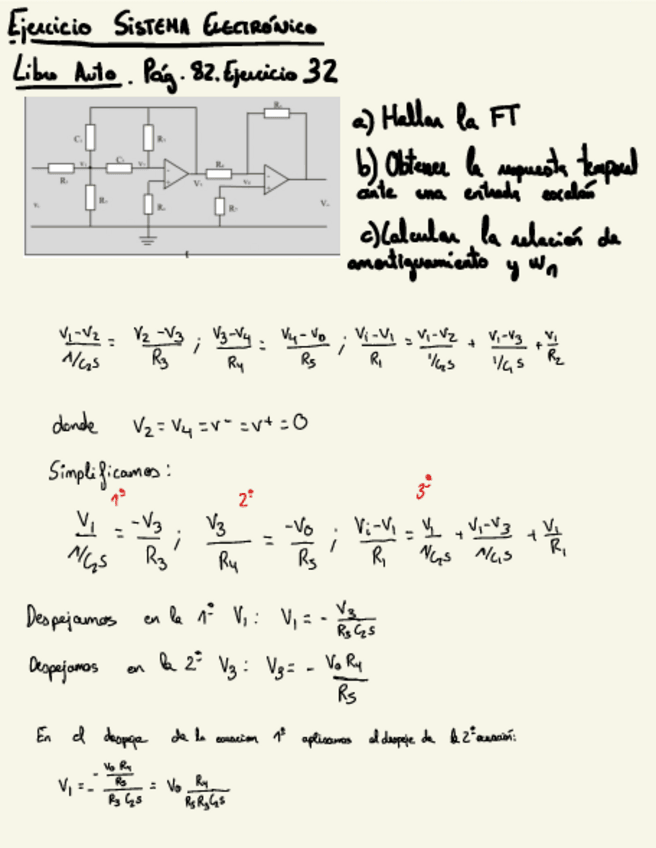 Ejercicio SISTEMA ELECTRÓNICO
Libro Auto. Pág. 82. Ejercicio 32
a) Hallar la FT
b) Obtener la respuesta temporal
ante una entrada escalón
c) Calcular la relación de
amortiguamiento y wn
(V1-V2)/(1/C2s) = (V2-V3)/R3 ; (V3-V4)/R4 = (V4-V0)/R5 ; (Vi-V1)/R1 = (V1-V2)/(1/C2s) + (V1-V3)/(1/C1s) + V1/R2
donde V2 = V4 = V- = V+ = 0
Simplificamos:
1ª 2ª 3ª
V1/(1/C2s) = -V3/R3 ; V3/R4 = -V0/R5 ; (Vi-V1)/R1 = V1/(1/C2s) + (V1-V3)/(1/C1s) + V1/R1
Despejamos en la 1ª V1: V1 = - V3/(R3 C2s)
Despejamos en la 2ª V3: V3 = - V0 R4/R5
En el despeje de la ecuacion 1ª aplicamos el despeje de la 2ª ecuación:
V1 = - (-V0 R4/R5)/(R3 C2s) = V0 R4/(R5R3C2s)